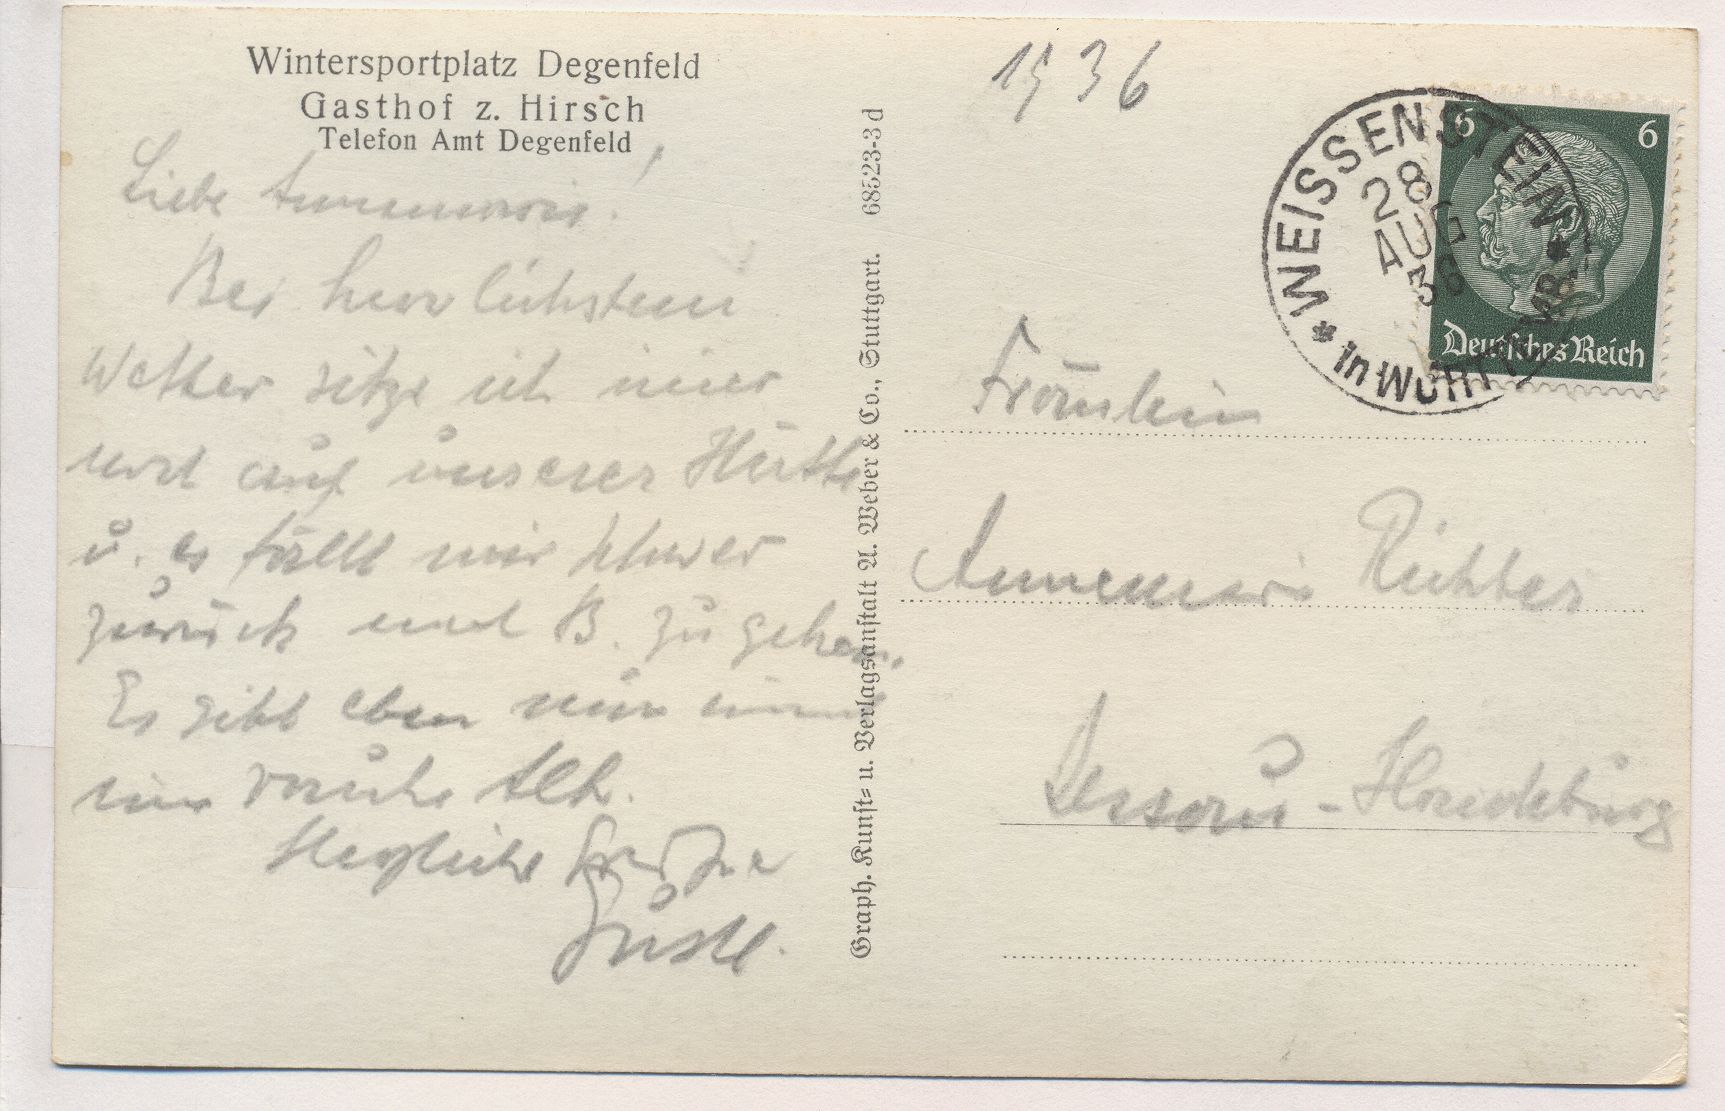 Wintersportplatz Degenfeld
Gasthof z. Hirsch
Telefon Amt Degenfeld
Liebe Annemarie!
Bei herrlichstem
Wetter sitze ich hier
und auf unserer Hütte
u. es fällt mir schwer
zurück nach B. zu gehen.
Es gibt eben nur
eine rauhe Alb.
Herzliche Grüße
Gustl.
Graph. Kunst- u. Verlagsanstalt A. Weber & Co., Stuttgart. 68523-3 d
1936
WEISSENSTEIN
28
AUG
36
* in WÜRTTEMB. *
6 6
Deutsches Reich
Fräulein
Annemarie Richter
Dessau-